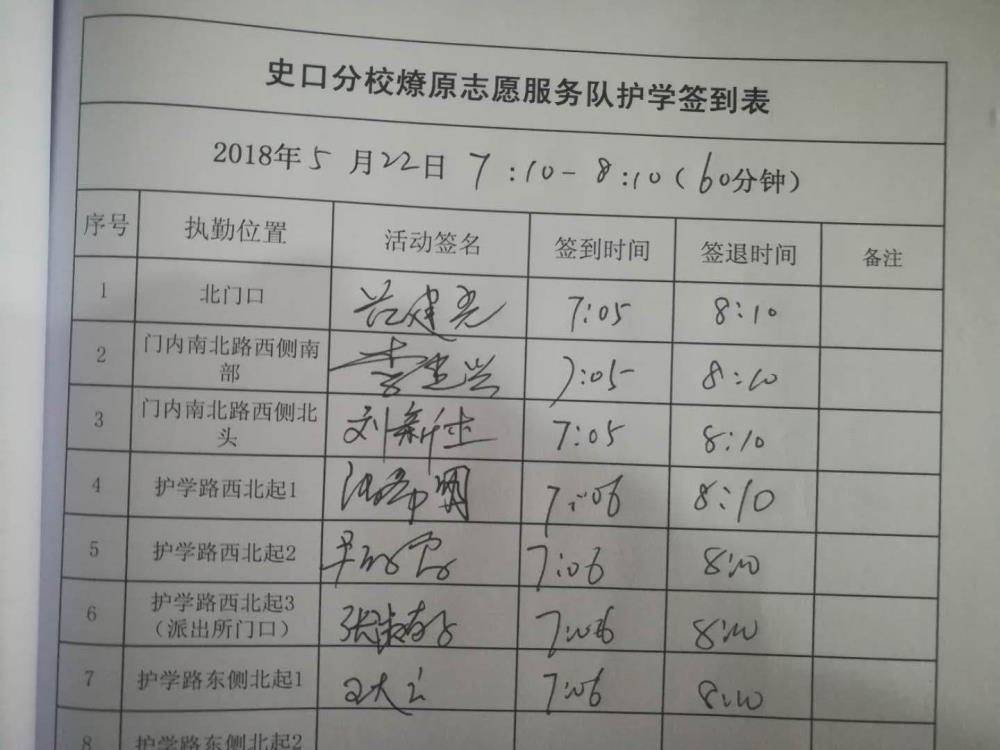 史口分校燎原志愿服务队护学签到表
2018年5月22日 7:10-8:10(60分钟)
序号 执勤位置 活动签名 签到时间 签退时间 备注
1 北门口 建光 7:05 8:10
2 门内南北路西侧南 李建兴 7:05 8:10
部
3 门内南北路西侧北 刘新 7:05 8:10
头
4 护学路西北起1 7:06 8:10
5 护学路西北起2 7:06 8:10
6 护学路西北起3 张 7:06 8:10
(派出所门口)
7 护学路东侧北起1 7:06 8:10
8 护学路东侧北起2